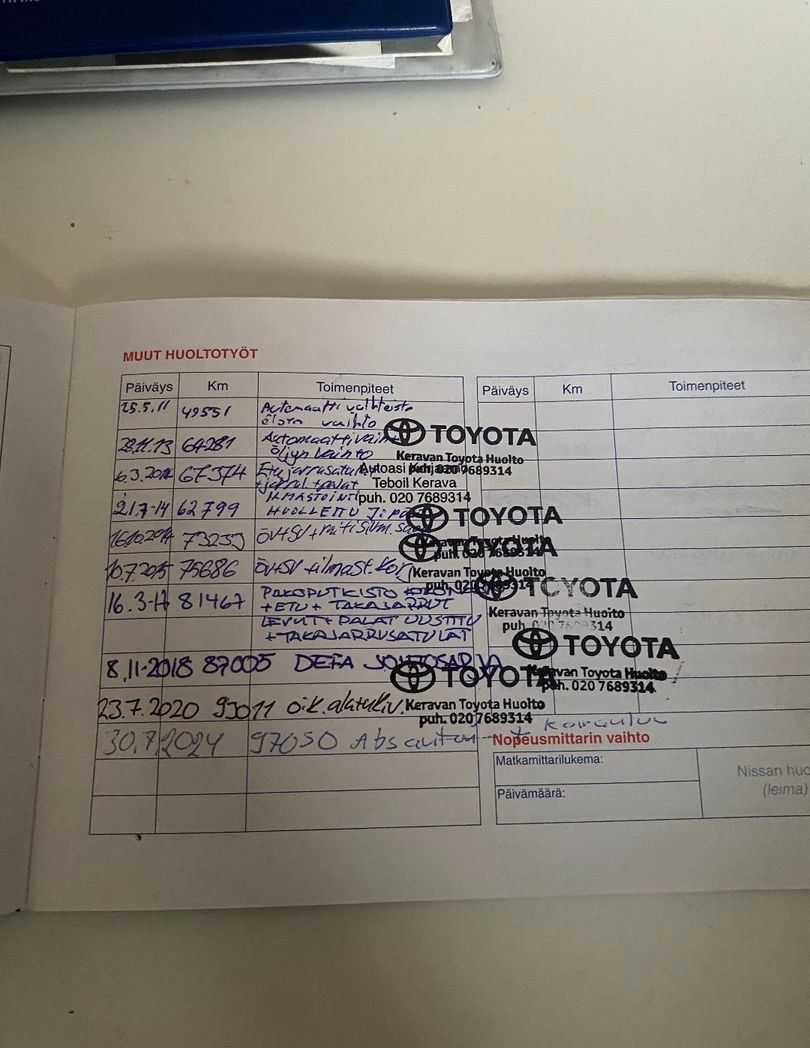 MUUT HUOLTOTYÖT
Päiväys Km Toimenpiteet Päiväys Km Toimenpiteet
25.5.11 49551 Automaattivaihteisto
öljyn vaihto
TOYOTA
28.11.13 64281 Automaattivaih
öljyn vaihto
Keravan Toyota Huolto
puh. 020 7689314
6.3.2014 67374 Etujarrusatulat
+jarrul+palat
Autoasi
Teboil Kerava
puh. 020 7689314
21.7-14 62799 ILMASTOINTI
HUOLLETTU
TOYOTA
16.10.2014 73253 ÖV+SV+
TOYOTA
10.7.2015 75686 ÖV+SV+ilmast.
Keravan Toyota Huolto
puh. 020 7689314
16.3-17 81467 PAKOPUTKISTO
+ETU+TAKAJARRUT
TOYOTA
Keravan Toyota Huolto
puh. 020 7689314
LEVYT+PALAT UUSITTU
+TAKAJARRUSATULAT
TOYOTA
Keravan Toyota Huolto
puh. 020 7689314
8.11-2018 87005 DEFA JOHTOSARJA
TOYOTA
23.7.2020 93011 oik.alatukiv.
Keravan Toyota Huolto
puh. 020 7689314
30.7.2024 97050
Nopeusmittarin vaihto
Matkamittarilukema:
Nissan huo
(leima)
Päivämäärä: